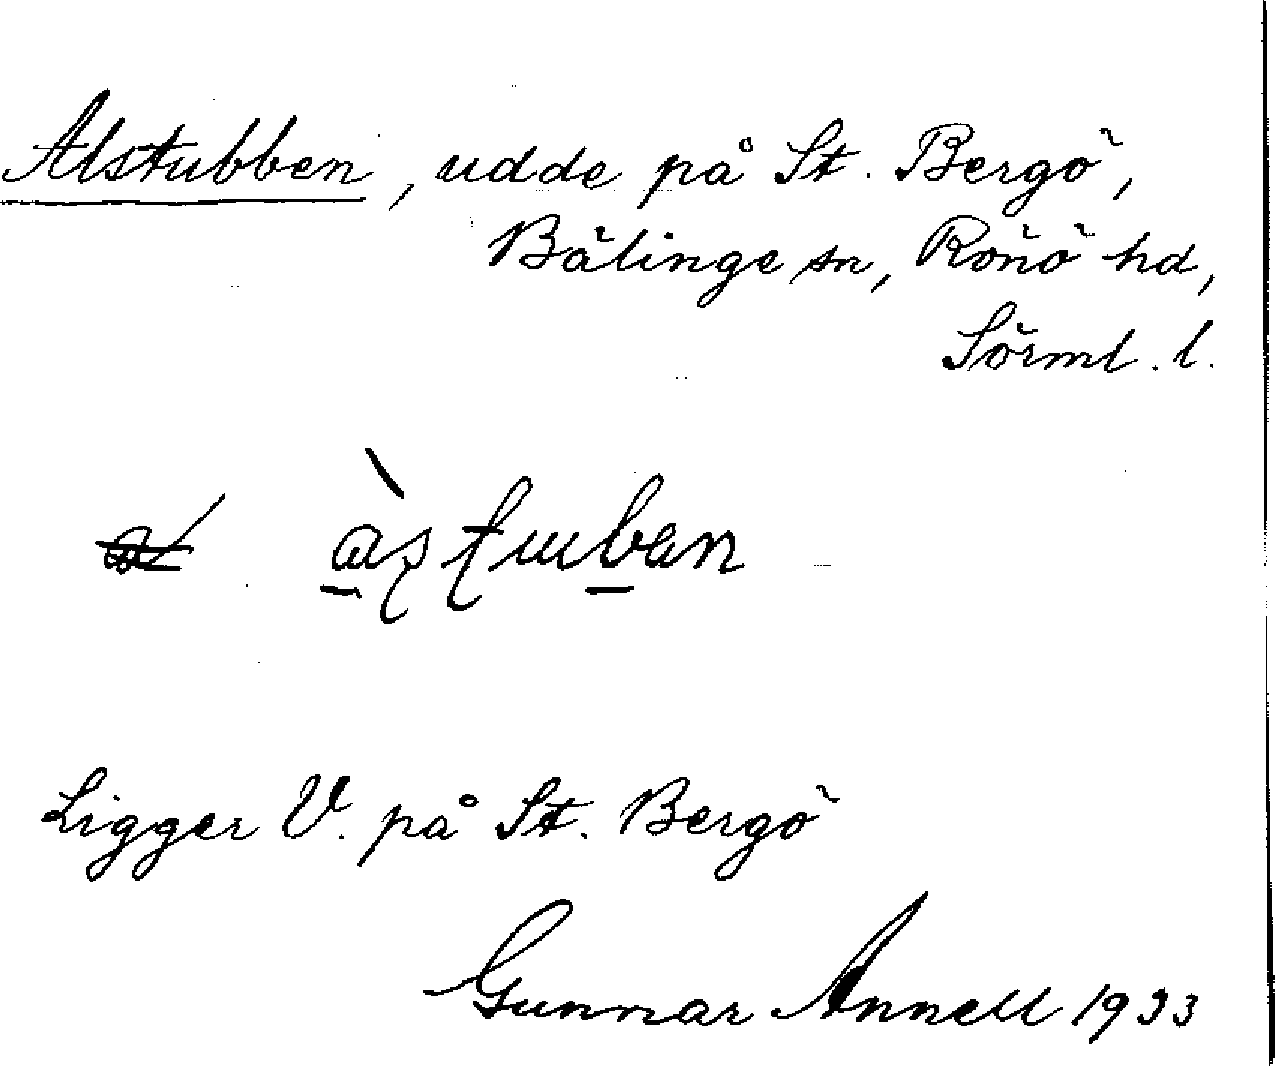 Alstubben, udde på St. Bergö,
Bälinge sn, Rönö hd,
Sörml. l.
Ligger V. på St. Bergö
Gunnar Annell 1933